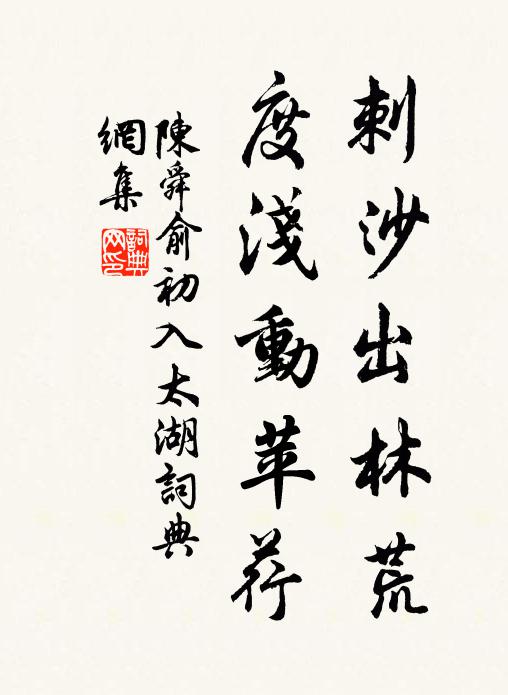 刺沙出林荒
度淺動苹荇
陳舜俞初入太湖詞典
網集
詞典
网印